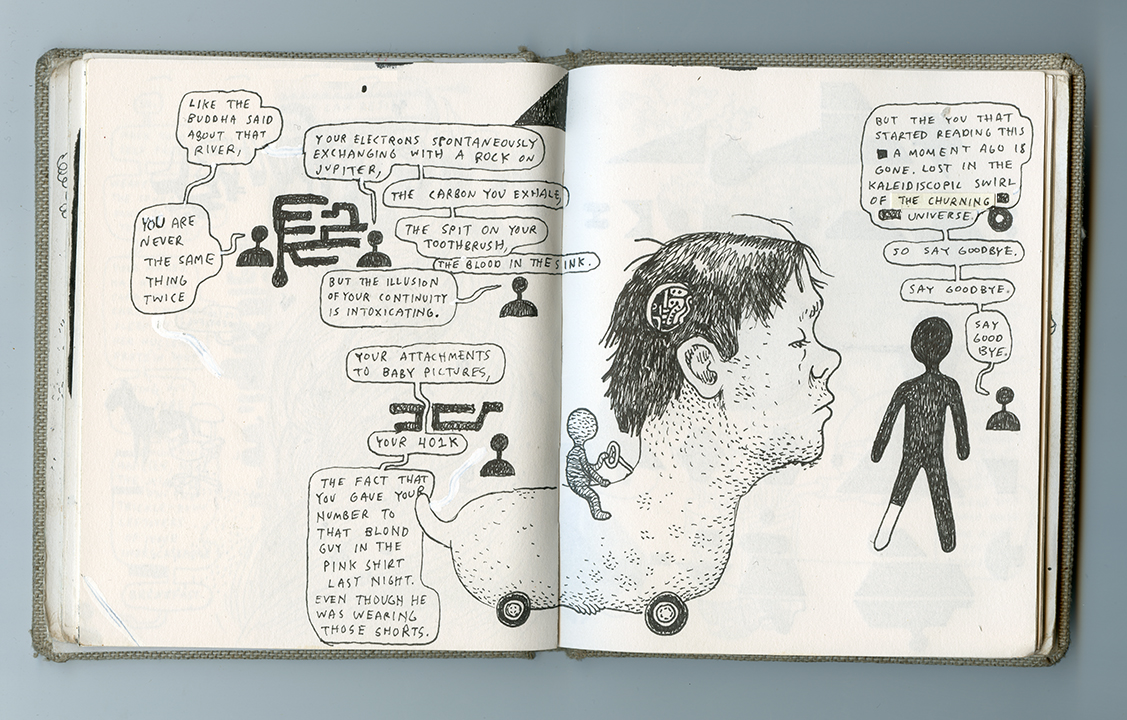 LIKE THE
BUDDHA SAID
ABOUT THAT
RIVER,
YOU ARE
NEVER
THE SAME
THING
TWICE
YOUR ELECTRONS SPONTANEOUSLY
EXCHANGING WITH A ROCK ON
JUPITER,
THE CARBON YOU EXHALE,
THE SPIT ON YOUR
TOOTHBRUSH,
THE BLOOD IN THE SINK.
BUT THE ILLUSION
OF YOUR CONTINUITY
IS INTOXICATING.
YOUR ATTACHMENTS
TO BABY PICTURES,
YOUR 401K
THE FACT THAT
YOU GAVE YOUR
NUMBER TO
THAT BLOND
GUY IN THE
PINK SHIRT
LAST NIGHT.
EVEN THOUGH HE
WAS WEARING
THOSE SHORTS.
BUT THE YOU THAT
STARTED READING THIS
A MOMENT AGO IS
GONE. LOST IN THE
KALEIDISCOPIC SWIRL
OF THE CHURNING
UNIVERSE.
SO SAY GOODBYE.
SAY GOODBYE.
SAY
GOOD
BYE.